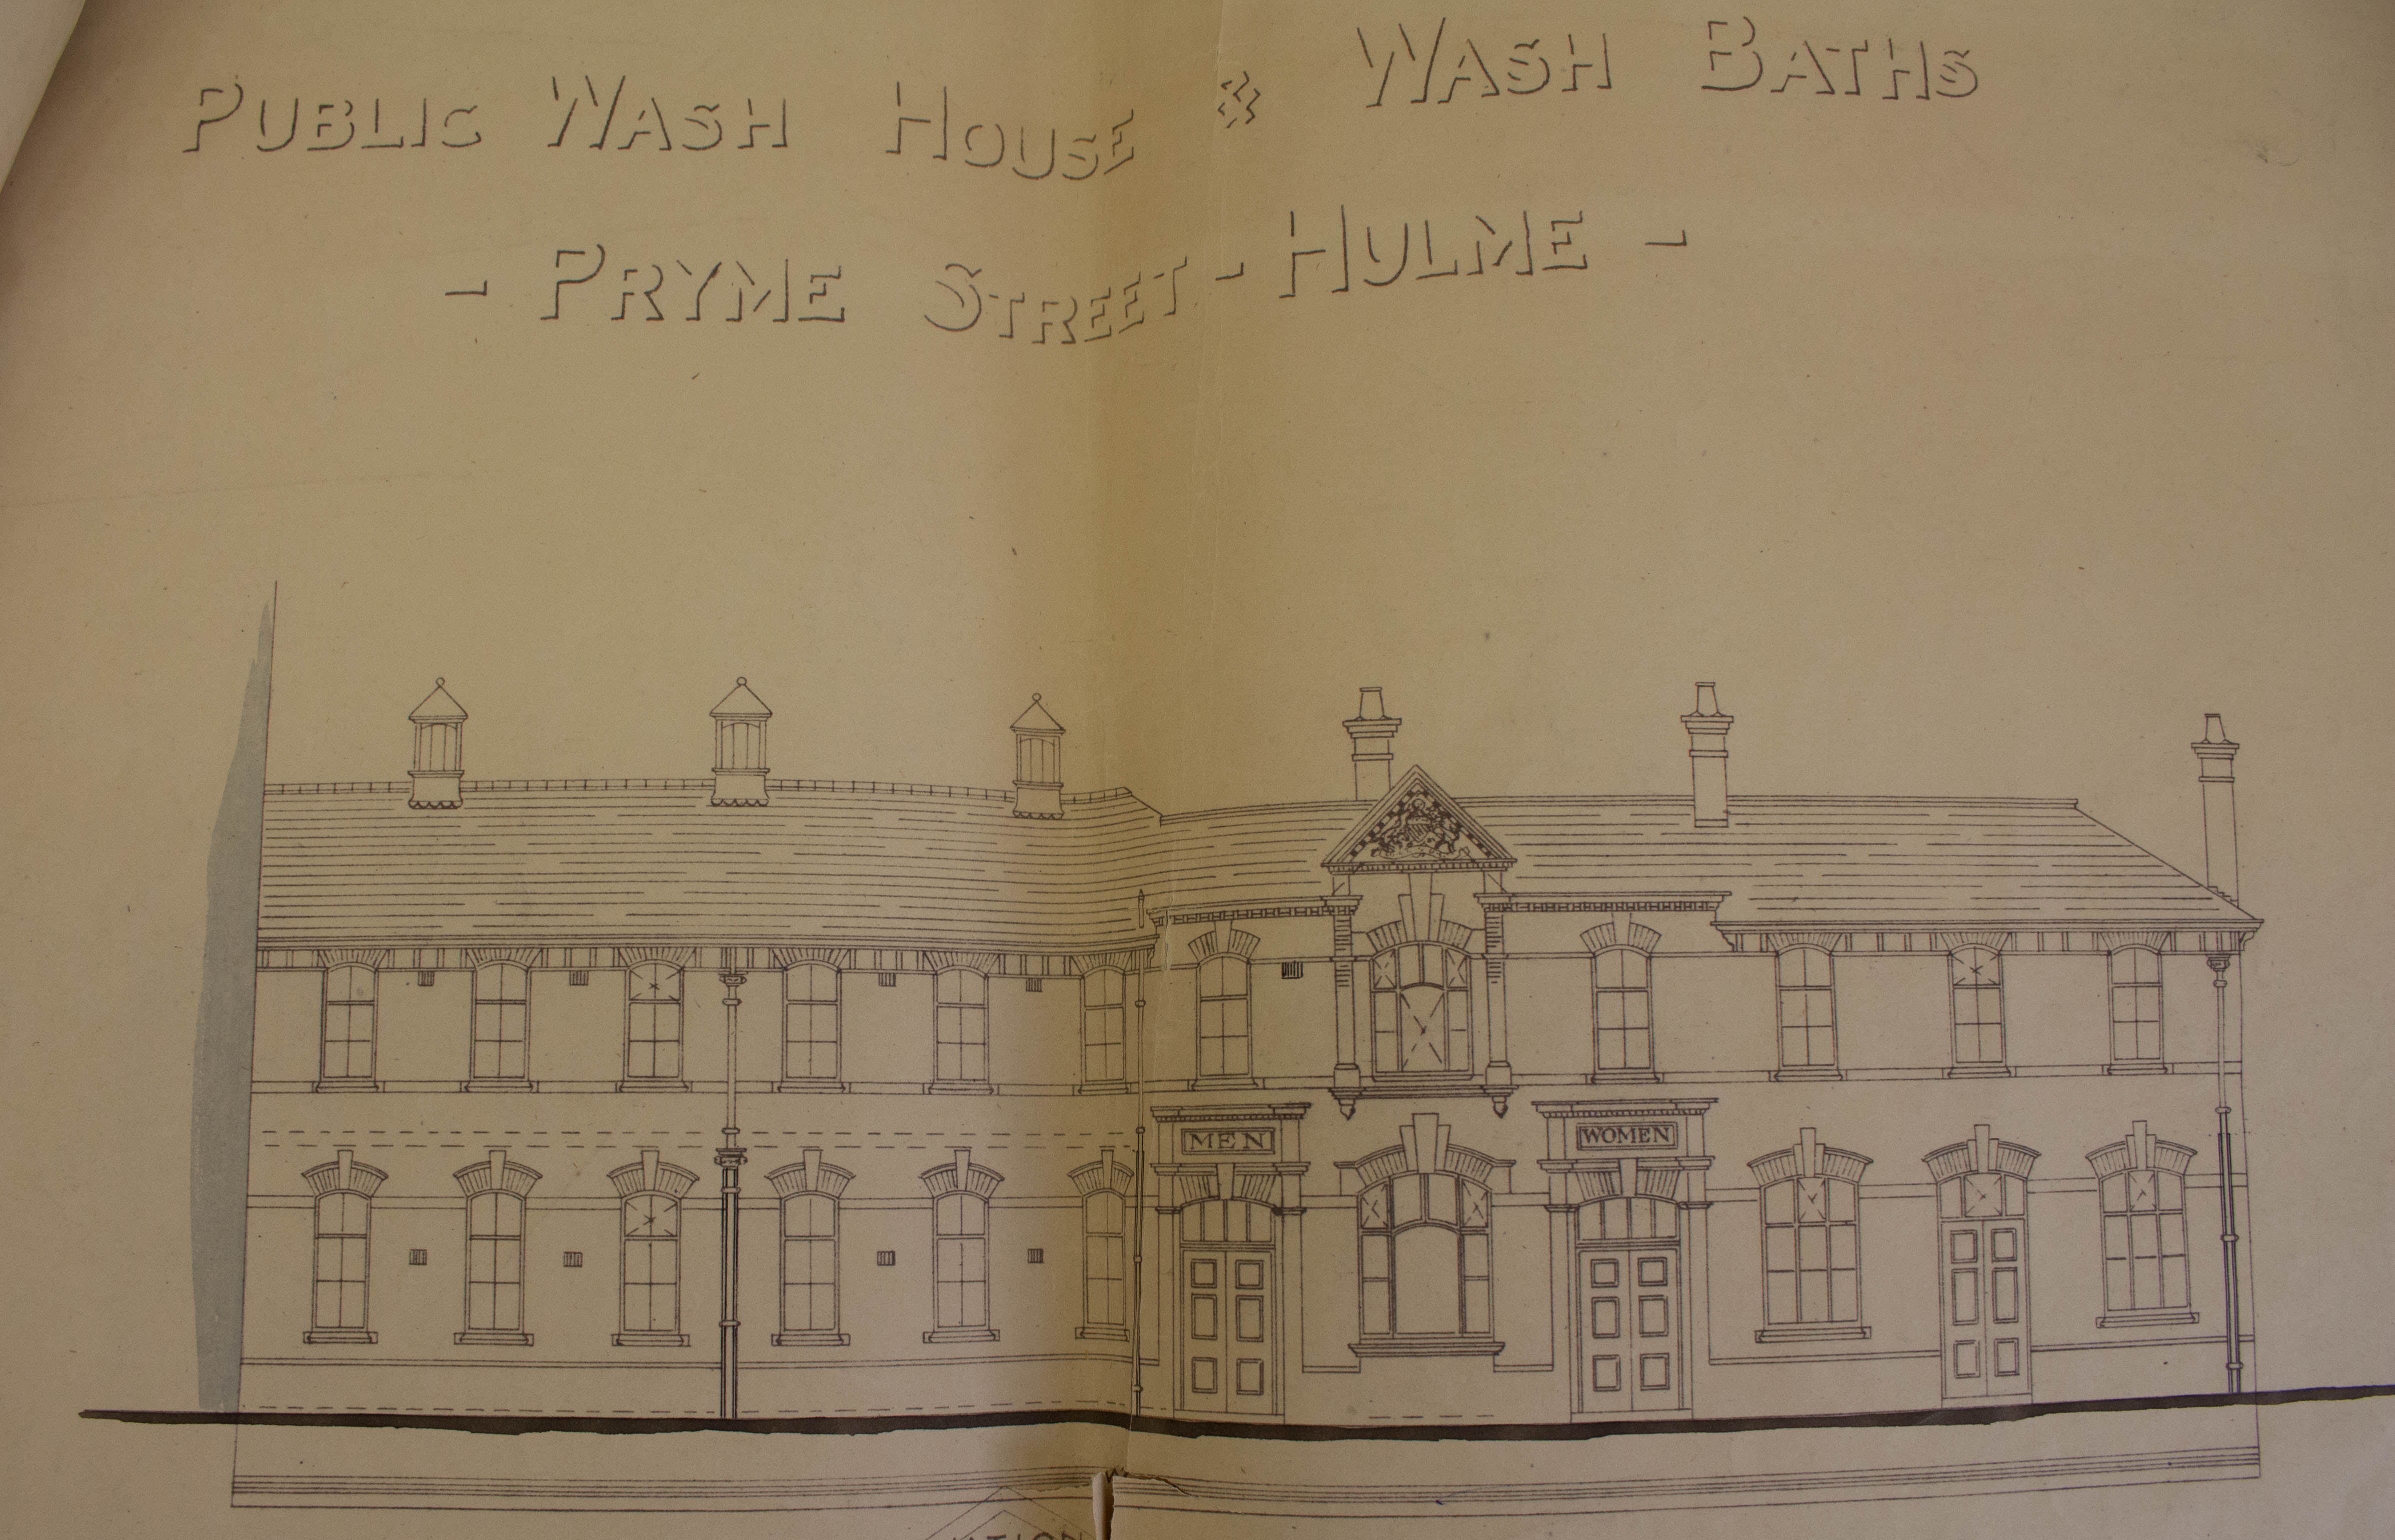 PUBLIC WASH HOUSE & WASH BATHS
- PRYME STREET - HULME -
MEN
WOMEN